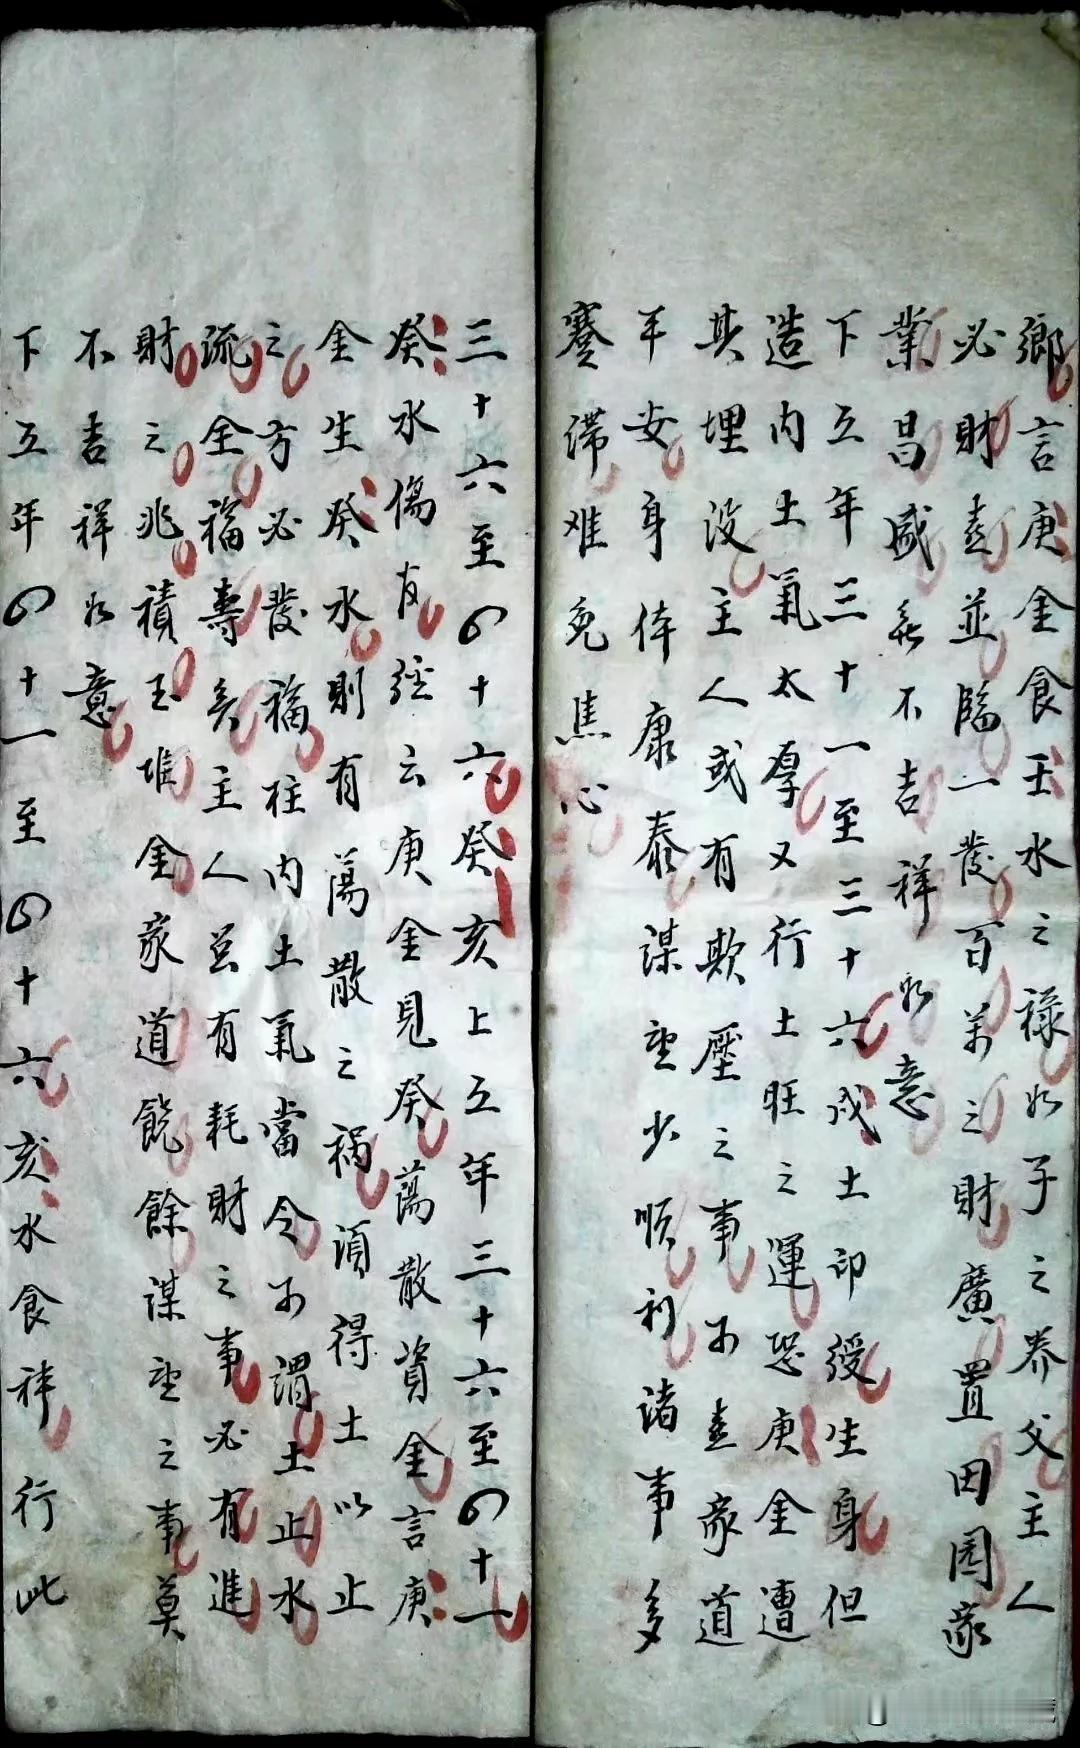 鄉言庚金食壬水之祿如子之养父主人
必財喜並臨一發百萬之財廣置田园家
業昌盛無不吉祥如意
下五年三十一至三十六戌土印綬生身但
造内土氣太厚又行土旺之運恐庚金遭
其埋没主人或有欺壓之事不喜家道
平安身体康泰謀望少順利诸事多
蹇滞难免焦心
三十六至四十六癸亥上五年三十六至四十一
癸水傷官經云庚金見癸蕩散資金言庚
金生癸水則有蕩散之禍須得土以止
之方必發福柱内土氣當令不謂土止水
流全福壽矣主人豈有耗財之事必有進
財之兆積玉堆金家道饒餘謀望之事莫
不吉祥如意
下五年四十一至四十六亥水食神行此